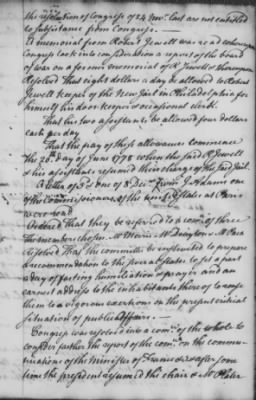 the resolution of Congress of 24 Novr. last are not entitled
to subsistance from Congress. —
A memorial from Robert Jewell was read whereupon
Congress took into consideration a report of the board
of war on a former memorial of R. Jewell & thereupon
Resolved That eight dollars a day be allowed to Robert
Jewell keeper of the New Jail in Philadelphia for
himself his door keeper & occasional clerk.
That his two assistants be allowed four dollars
each per day
That the pay of these allowances commence
the 28th. day of June 1778 when the said R. Jewell
& his assistants resumed their charge of the said Jail.
A letter of 3d & one of 8 Decr. from J. Adams one
of the Commissioners of the United States at Paris
were read
Ordered That they be referred to a comee. of three
the members chosen Mr. Morris Mr. Drayton & Mr. Paca
Resolved That the committee be instructed to prepare
a recommendation to the several states to set apart
a day of fasting humiliation & prayer and an
earnest address to the inhabitants thereof to rouse
them to vigorous exertions in the present critical
situation of public affairs. —
Congress was resolved into a comee. of the whole to
consider farther the report of the comee. on the commu-
nications of the Minister of France & after some
time the president resumed the chair & Mr. Plater